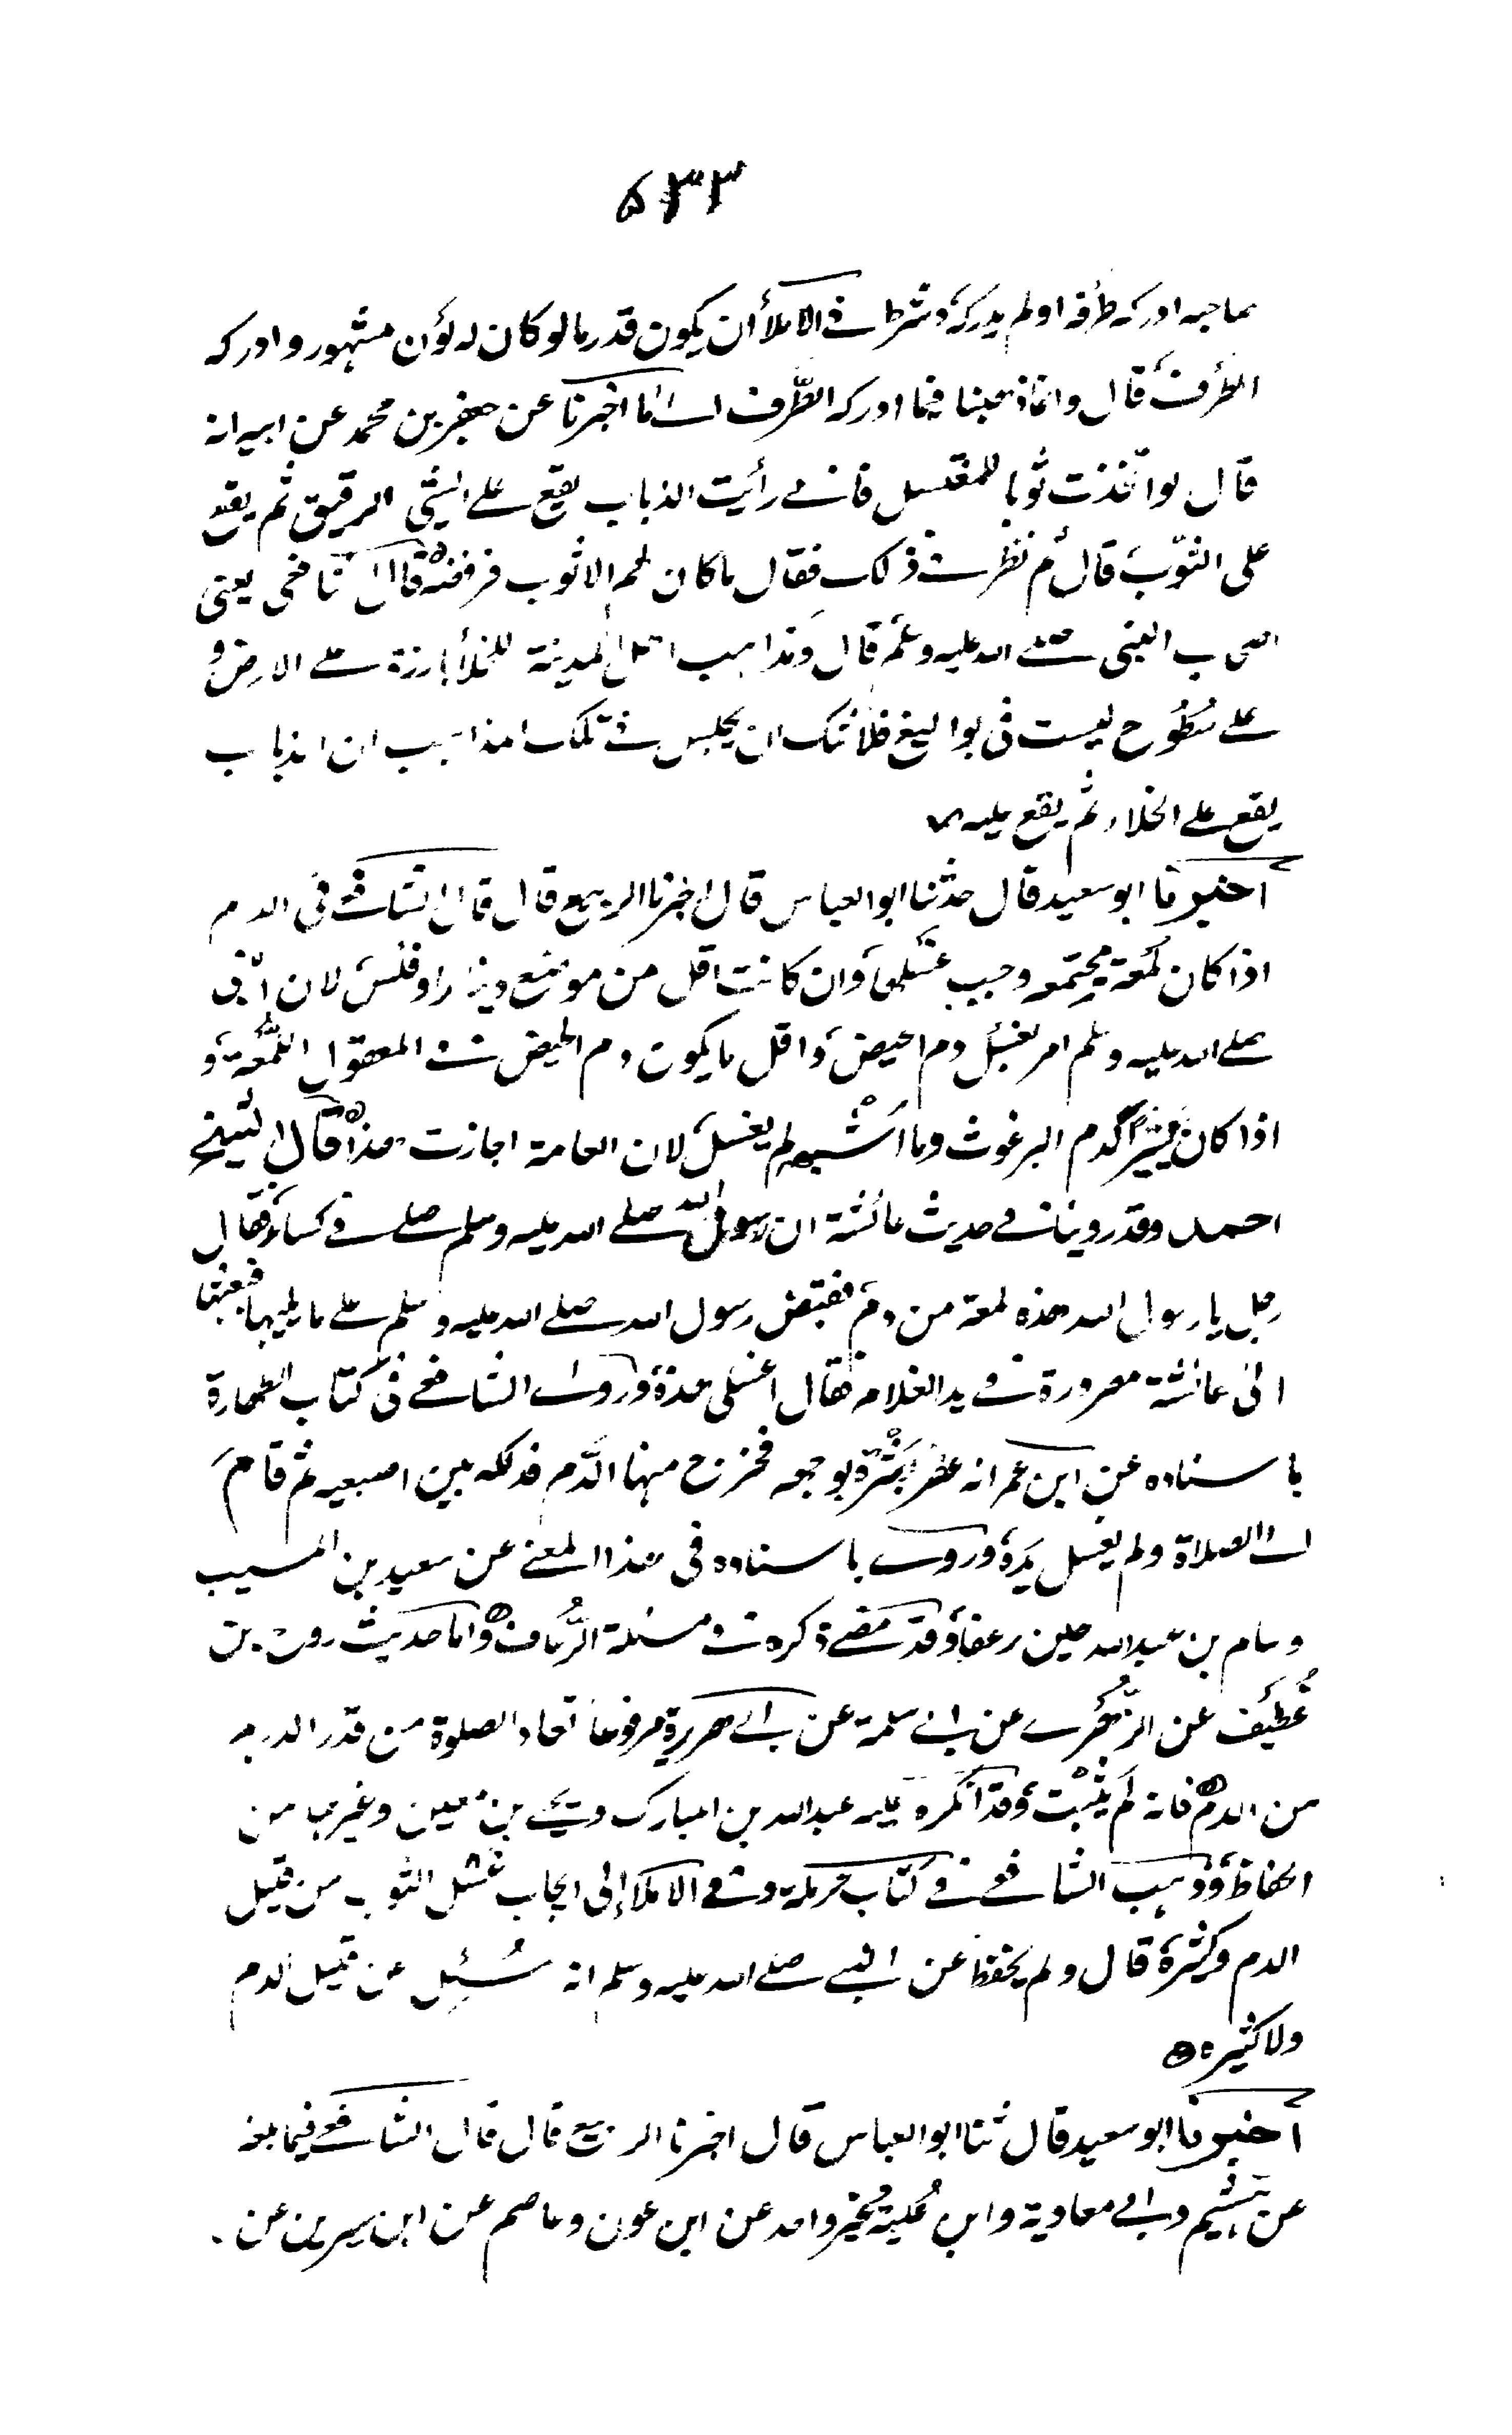 ٥٣٣
صاحبه ادركه طرفه او لم يدركه وشرط في الاملاء ان يكون قدر ما لو كان له لون مشهور وادركه
الطرف قال وانما ذهبنا فيما ادركه الطرف الى ما اخبرنا عن جعفر بن محمد عن ابيه انه
قال لو اتخذت ثوبا للمغتسل فاني رأيت الذباب يقع على الشئ الرقيق ثم يقع
على الثوب قال ثم نظرت في ذلك فقال ما كان لهم الا ثوب فرفضه قال الشافعي يعني
اصحاب النبي صلى الله عليه وسلم قال ومذاهب اهل المدينة للخلاء بارزة على الارض و
على سطوح ليست في بواليع فلا شك ان يجلس في تلك المذاهب ان الذباب
يقع على الخلاء ثم يقع عليه
اخبرنا ابو سعيد قال حدثنا ابو العباس قال اخبرنا الربيع قال قال الشافعي في الدم
اذا كان لمعة مجتمعة وجب غسلها وان كانت اقل من موضع دينار او فلس لان النبي
صلى الله عليه وسلم امر بغسل دم الحيض واقل ما يكون دم الحيض في المعقول اللمعة و
اذا كان يسيرا كدم البرغوث وما اشبهه لم يغسل لان العامة اجازت هذا قال الشيخ
احمد وقد روينا في حديث عائشة ان رسول الله صلى الله عليه وسلم صلى في كساء فقال
رجل يا رسول الله هذه لمعة من دم فقبض رسول الله صلى الله عليه وسلم على ما يليها فبعثها
الى عائشة مصرورة في يد الغلام فقال اغسلي هذة وروى الشافعي في كتاب الطهارة
باسناده عن ابن عمر انه عصر بثرة بوجهه فخرج منها الدم فدلكه بين اصبعيه ثم قام
الى الصلاة ولم يغسل يده وروى باسناده في هذا المعنى عن سعيد بن المسيب
وسالم بن عبد الله حين رعفا وقد مضى ذكره في مسئلة الرعاف واما حديث روح بن
غطيف عن الزهري عن ابي سلمة عن ابي هريرة مرفوعا تعاد الصلوة من قدر الدرهم
من الدم فانه لم يثبت وقد انكره عليه عبد الله بن المبارك ويحيى بن معين وغيرهما من
الحفاظ وذهب الشافعي في كتاب حرملة وفي الاملاء الى ايجاب غسل الثوب من قليل
الدم وكثيره قال ولم يحفظ عن النبي صلى الله عليه وسلم انه سُئِل عن قليل الدم
ولا كثيره
اخبرنا ابو سعيد قال ثنا ابو العباس قال اخبرنا الربيع قال قال الشافعي فيما بلغه
عن هشيم وابي معاوية وابن علية وغير واحد عن ابن عون وعاصم عن ابن سيرين عن